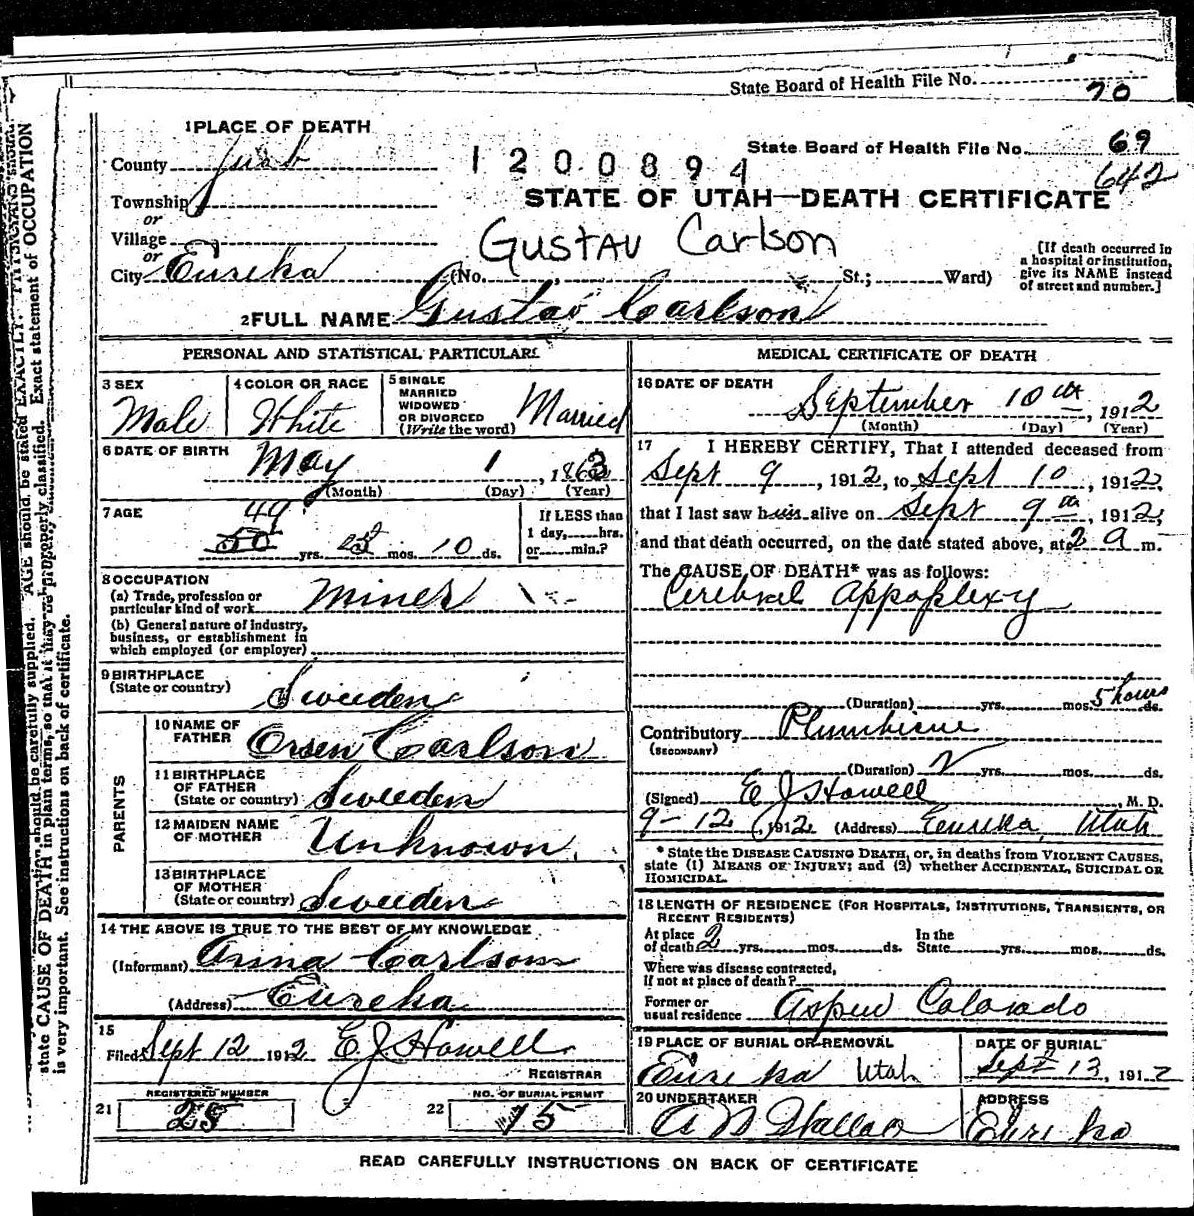 State Board of Health File No. 70
1 PLACE OF DEATH
County Juab
1200894
State Board of Health File No. 69
642
Township
or
STATE OF UTAH—DEATH CERTIFICATE
Village
or
GUSTAV Carlson
City Eureka (No. , St.; Ward)
[If death occurred in
a hospital or institution,
give its NAME instead
of street and number.]
2 FULL NAME Gustav Carlson
PERSONAL AND STATISTICAL PARTICULARS
3 SEX
Male
4 COLOR OR RACE
White
5 SINGLE
MARRIED
WIDOWED
OR DIVORCED
(Write the word)
Married
6 DATE OF BIRTH
May 1, 1863
(Month) (Day) (Year)
7 AGE
49
50 yrs. mos. 10 ds.
If LESS than
1 day, hrs.
or min.?
8 OCCUPATION
(a) Trade, profession or
particular kind of work Miner
(b) General nature of industry,
business, or establishment in
which employed (or employer)
9 BIRTHPLACE
(State or country) Sweeden
PARENTS
10 NAME OF
FATHER Orsen Carlson
11 BIRTHPLACE
OF FATHER
(State or country) Sweeden
12 MAIDEN NAME
OF MOTHER Unknown
13 BIRTHPLACE
OF MOTHER
(State or country) Sweeden
14 THE ABOVE IS TRUE TO THE BEST OF MY KNOWLEDGE
(Informant) Anna Carlson
(Address) Eureka
15
Filed Sept 12 1912 E J Howell
REGISTRAR
REGISTERED NUMBER
21 25
NO. OF BURIAL PERMIT
22 15
MEDICAL CERTIFICATE OF DEATH
16 DATE OF DEATH
September 10th, 1912
(Month) (Day) (Year)
17 I HEREBY CERTIFY, That I attended deceased from
Sept 9, 1912, to Sept 10, 1912,
that I last saw him alive on Sept 9th, 1912,
and that death occurred, on the date stated above, at 2 a m.
The CAUSE OF DEATH* was as follows:
Cerebral Appoplexy
(Duration) yrs. mos. 5 hours ds.
Contributory
(SECONDARY)
(Duration) yrs. mos. ds.
(Signed) E J Howell, M. D.
9-12, 1912 (Address) Eureka, Utah
* State the DISEASE CAUSING DEATH, or, in deaths from VIOLENT CAUSES,
state (1) MEANS OF INJURY; and (2) whether ACCIDENTAL, SUICIDAL OR
HOMICIDAL.
18 LENGTH OF RESIDENCE (FOR HOSPITALS, INSTITUTIONS, TRANSIENTS, OR
RECENT RESIDENTS)
At place
of death 2 yrs. mos. ds.
In the
State yrs. mos. ds.
Where was disease contracted,
if not at place of death?
Former or
usual residence Aspen Colorado
19 PLACE OF BURIAL OR REMOVAL
Eureka Utah
DATE OF BURIAL
Sept 13, 1912
20 UNDERTAKER
ADDRESS
Eureka
READ CAREFULLY INSTRUCTIONS ON BACK OF CERTIFICATE
should be carefully supplied. AGE should be stated EXACTLY. PHYSICIANS should
state CAUSE OF DEATH in plain terms, so that it may be properly classified. Exact statement of OCCUPATION
is very important. See instructions on back of certificate.